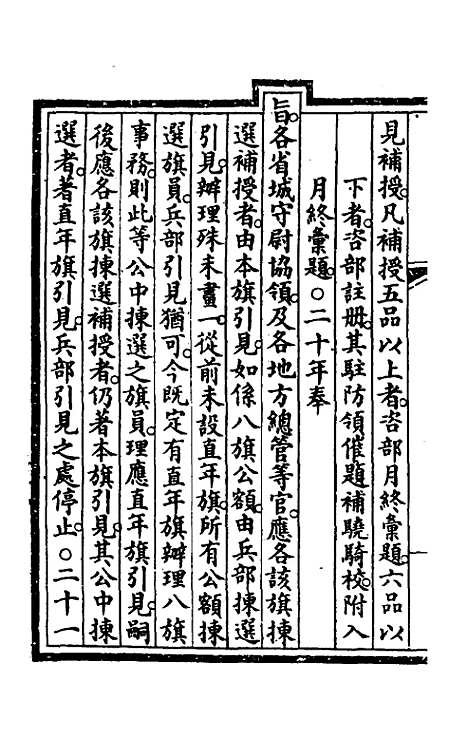 見補授。凡補授五品以上者。咨部月終彙題。六品以
下者。咨部註册。其駐防領催題補驍騎校。附入
月終彙題。○二十年奉
旨。各省城守尉協領。及各地方總管等官。應各該旗揀
選補授者。由本旗引見。如係八旗公額。由兵部揀選
引見。辦理殊未畫一。從前未設直年旗。所有公額揀
選旗員。兵部引見猶可。今既定有直年旗辦理八旗
事務。則此等公中揀選之旗員。理應直年旗引見。嗣
後應各該旗揀選補授者。仍著本旗引見。其公中揀
選者。著直年旗引見。兵部引見之處停止。○二十一